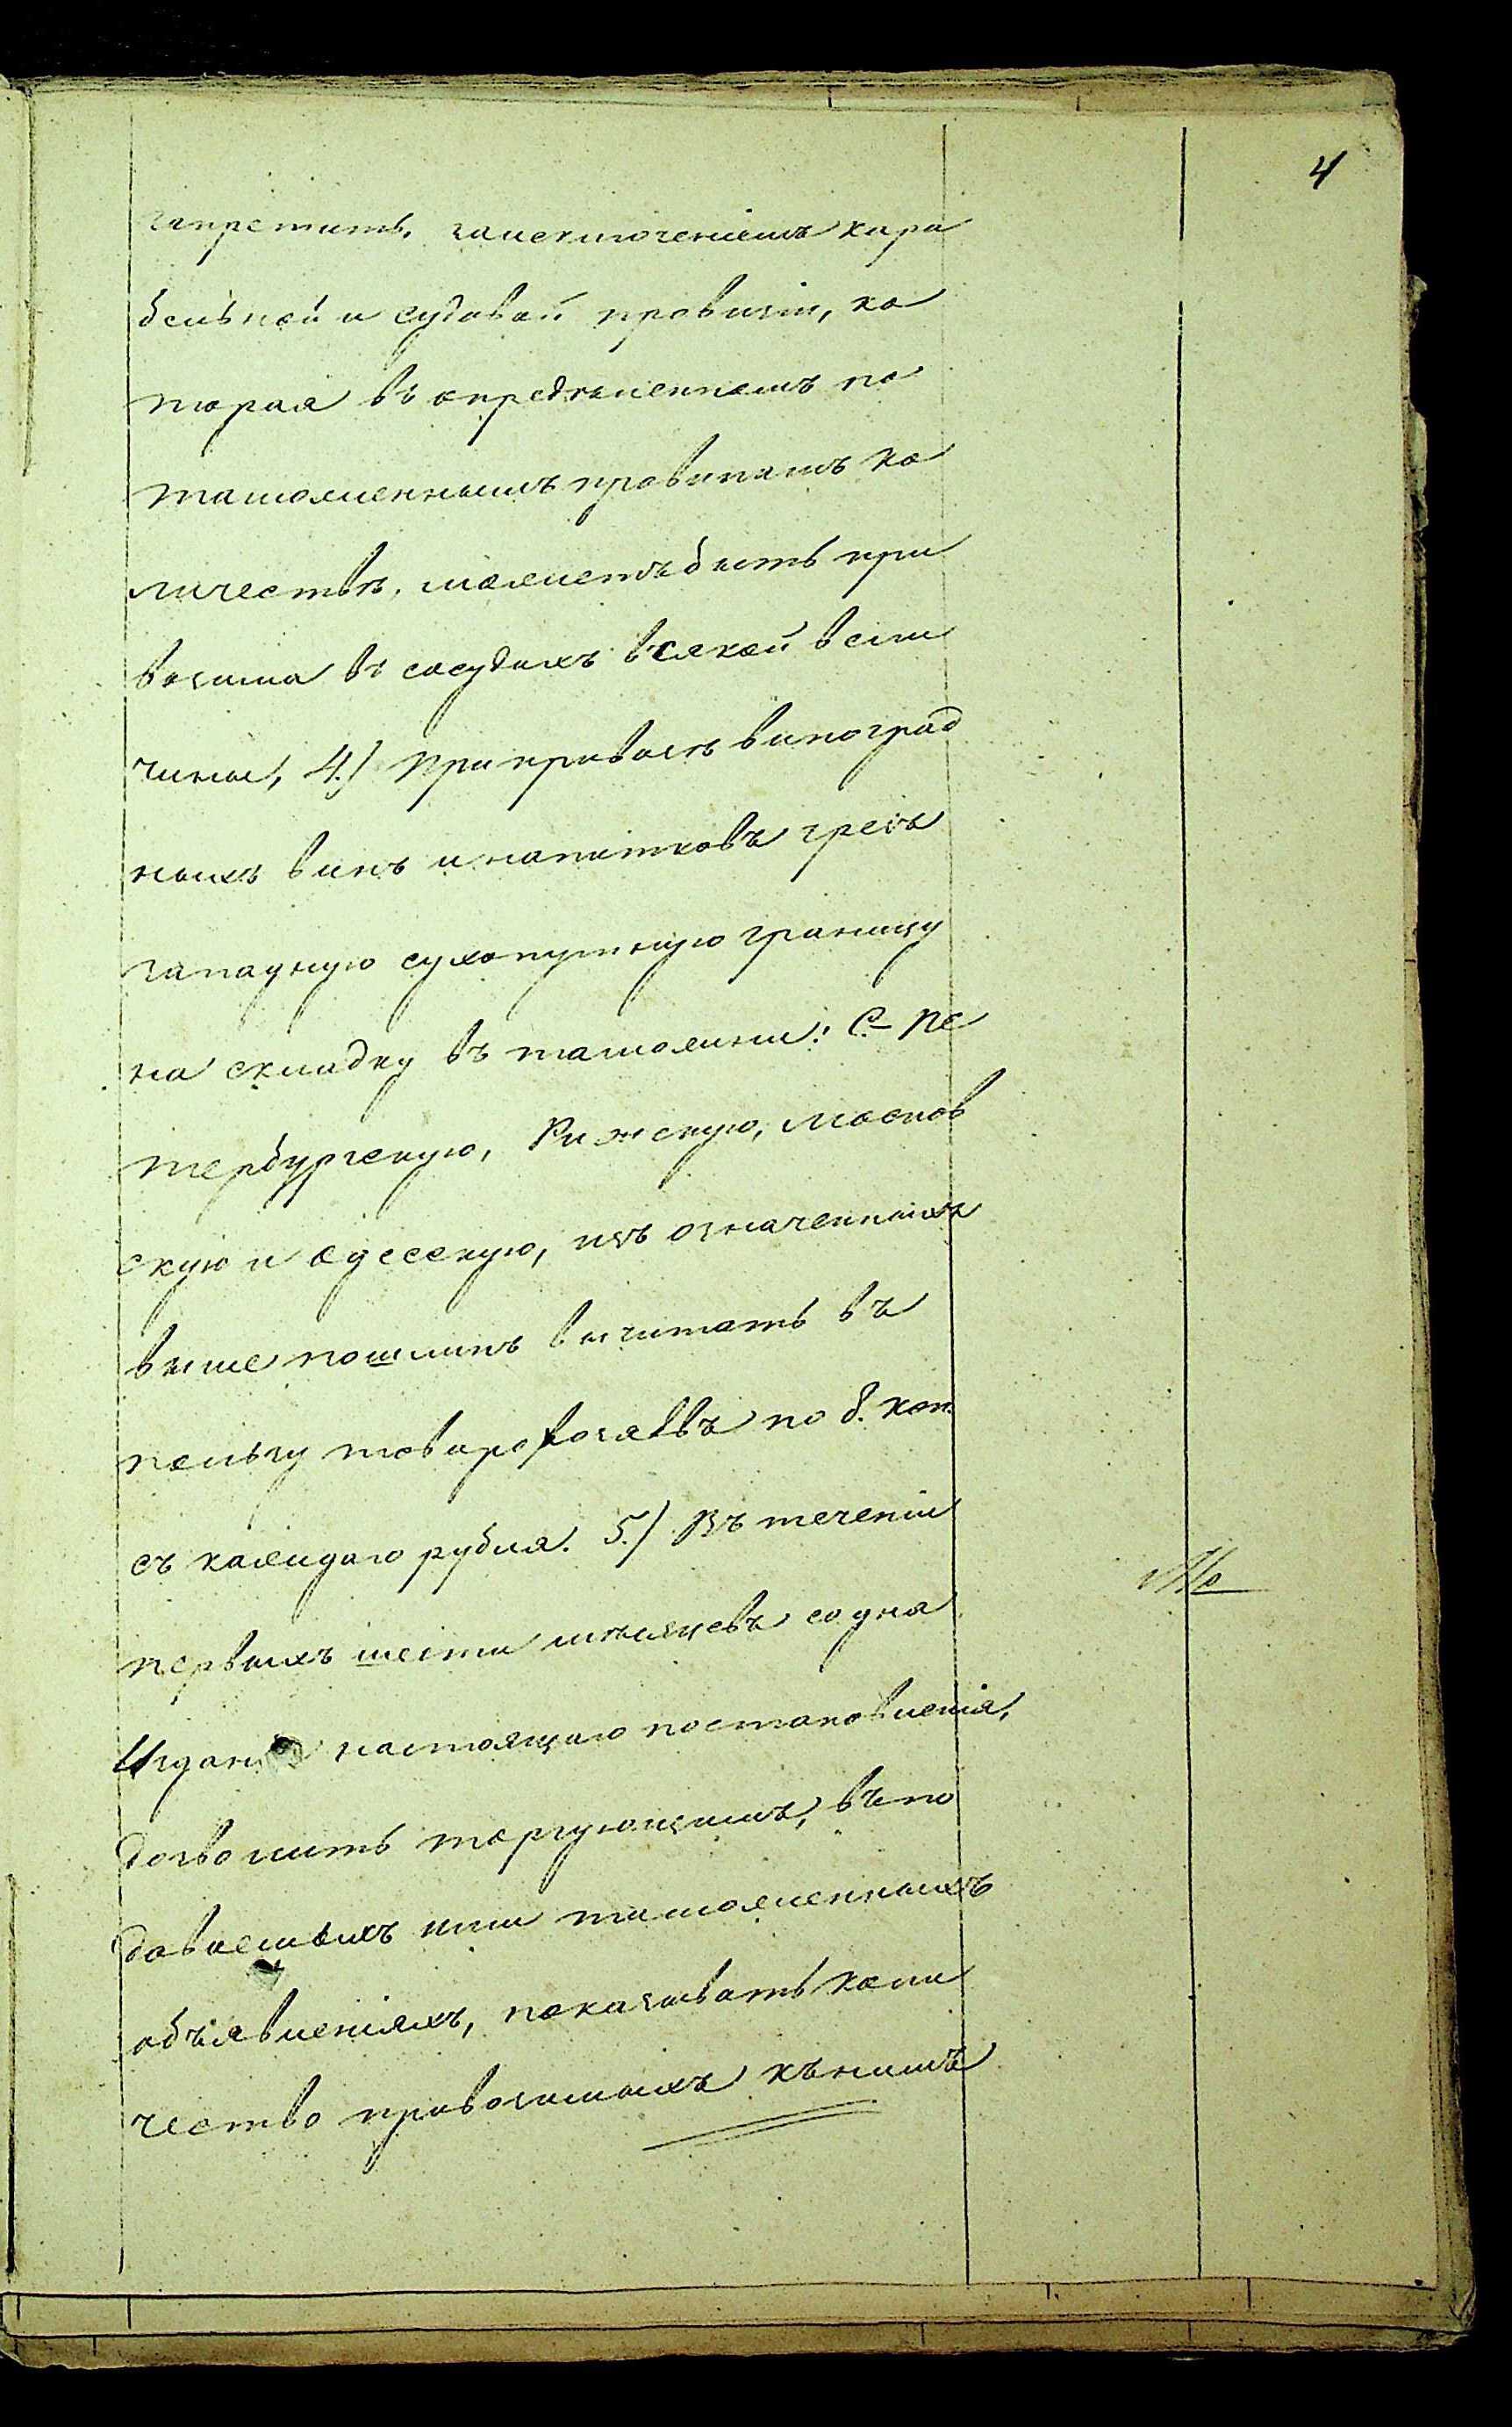 4
запретить, заисключеніемъ кора
бельной и судовой провизіи, ко
торая въ опредѣленномъ по
таможеннымъ правиламъ ко
личествѣ, можетъ быть при
возима въ сосудахъ всякой вели
чины, 4.) При привозѣ виноград
ныхъ винъ и напитковъ чрезъ
западную сухопутную границу
на складку въ таможни: С-Пе
тербургскую, Рижскую, Москов
скую и Одесскую, изъ означенныхъ
выше пошлинъ вычитать въ
пользу товарохозяевъ по 8. коп.
съ каждаго рубля. 5.) Въ теченіи
первыхъ шести мѣсяцевъ со дня
Изданія настоящаго постановленія,
дозволить торгующимъ, въ по
даваемыхъ ими таможенныхъ
объявленіяхъ, показывать коли
чество привозимыхъ къ нимъ